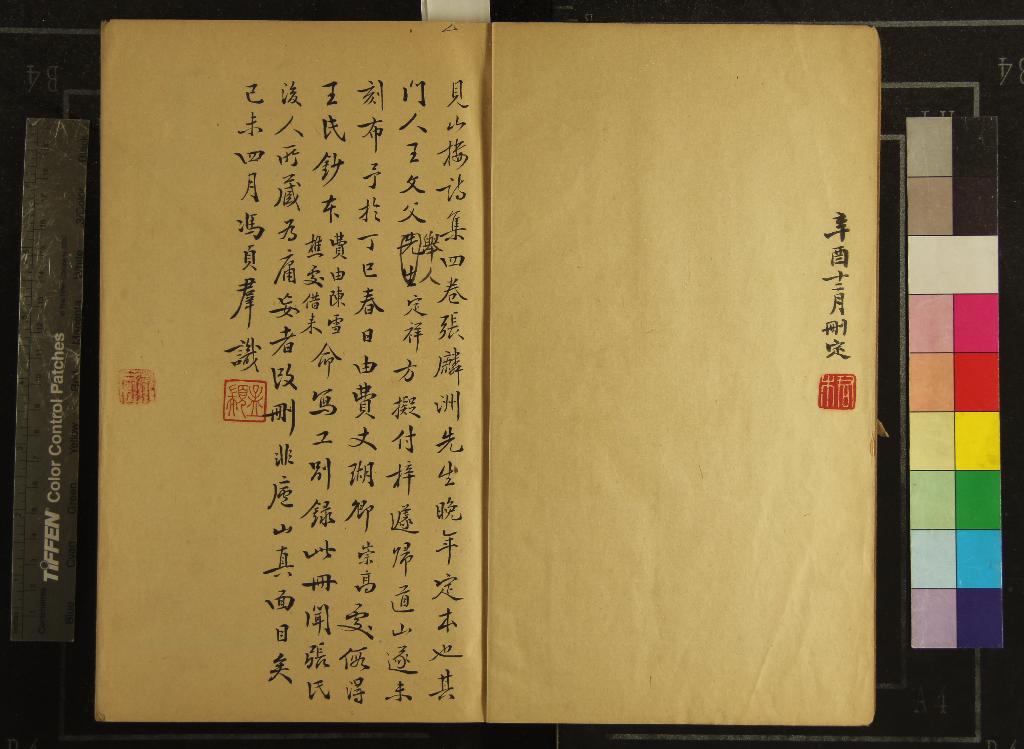 辛酉十二月刪定
見山樓詩集四卷張麟洲先生晚年定本也其
門人王文父先生舉人定祥方擬付梓遽歸道山遂未
刻布予於丁巳春日由費丈瑚卿崇高處假得
王氏鈔本費由陳雪樵處借来命寫工別録此冊聞張氏
後人所藏为庸妄者改刪非廬山真面目矣
己未四月馮貞羣識
TIFFEN Color Control Patches
B4
B4
A4